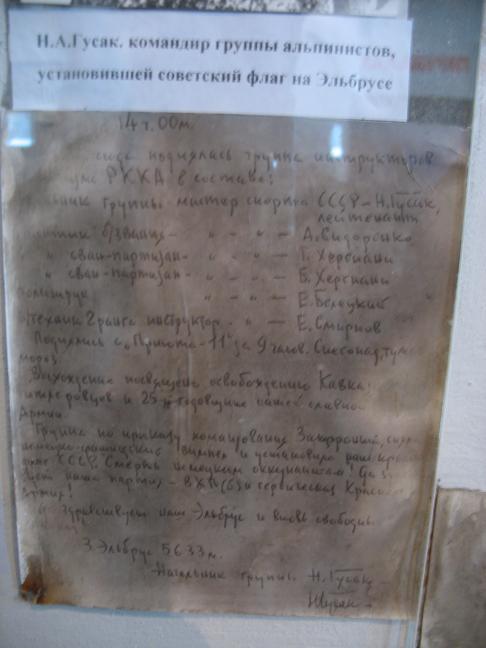 Н.А.Гусак. командир группы альпинистов,
установившей советский флаг на Эльбрусе
14 ч. 00 м.
сюда поднялась группа инструкторов
РККА в составе:
группы мастер спорта СССР – Н. Гусак,
лейтенант
б/звания – " – " – " – А. Сидоренко
" сван-партизан – " – " – Г. Хергиани
" сван-партизан – " – " – Б. Хергиани
политрук " – " – Е. Белецкий
в/техник 2 ранга инструктор – " – Е. Смирнов
Поднялись с „Приюта – 11" за 9 часов. Снегопад,
мороз.
Восхождение посвящено освобождению
и 25-й годовщине нашей славной
Армии.
Группа по приказу командования
вымпел и установила
СССР. Смерть немецким оккупантам!
наша партия – ВКП(б) и героическая
Здравствует наш Эльбрус и вновь
З. Эльбрус 5633 м.
Начальник группы Н. Гусак